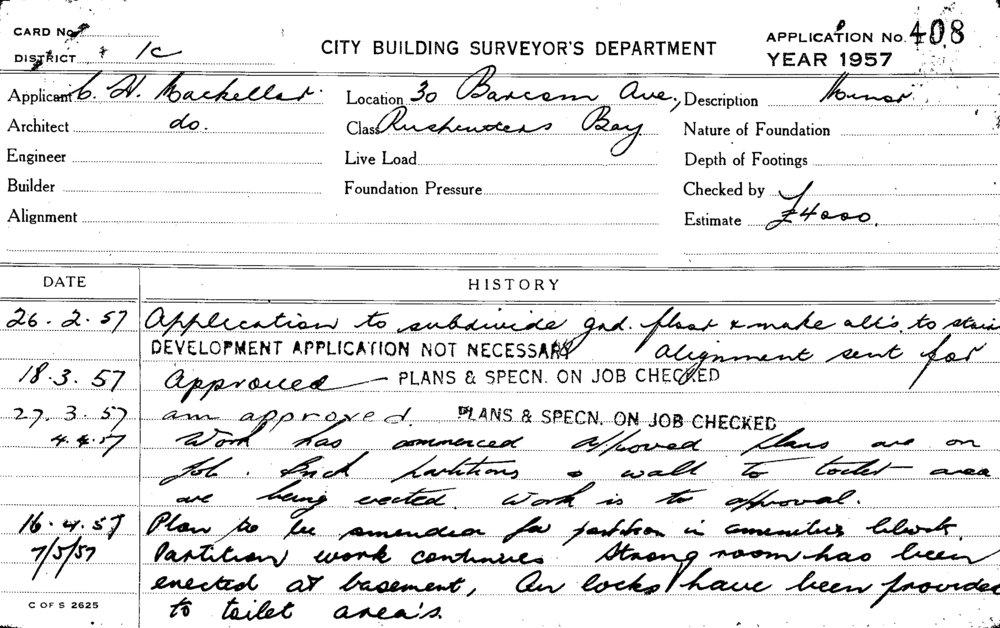 CARD No.
DISTRICT 1C
CITY BUILDING SURVEYOR'S DEPARTMENT
APPLICATION No. 408
YEAR 1957
Applicant C. H. Mackellar.
Location 30 Barcom Ave.,
Description Minor
Architect do.
Class Rushcutters Bay
Nature of Foundation
Engineer
Live Load
Depth of Footings
Builder
Foundation Pressure
Checked by
Alignment
Estimate £4000.
DATE
HISTORY
26.2.57 Application to subdivide gnd. floor & make alt's. to stairs
DEVELOPMENT APPLICATION NOT NECESSARY Alignment sent for
18.3.57 Approved — PLANS & SPECN. ON JOB CHECKED
27.3.57 am approved. PLANS & SPECN. ON JOB CHECKED
4.4.57 Work has commenced approved plans are on
job. Brick partitions & wall to toilet area
are being erected. Work is to approval.
16.4.57 Plan to be amended for partition in amenities block.
7/5/57 Partition work continues Strong room has been
erected at basement, Air locks have been provided
to toilet area's.
C OF S 2625